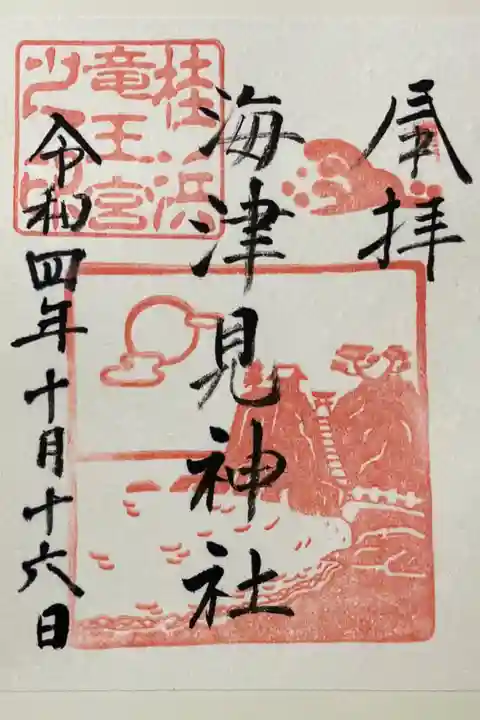 奉拝
海津見神社
令和四年十月十六日
桂浜
竜王宮